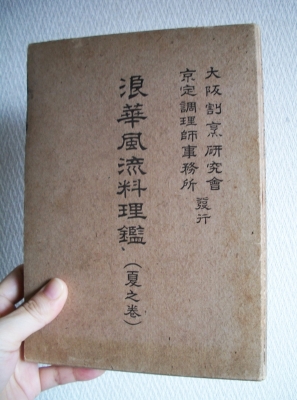 大阪割烹研究會
京定調理師事務所
發行
浪華風流料理鑑
(夏之卷)